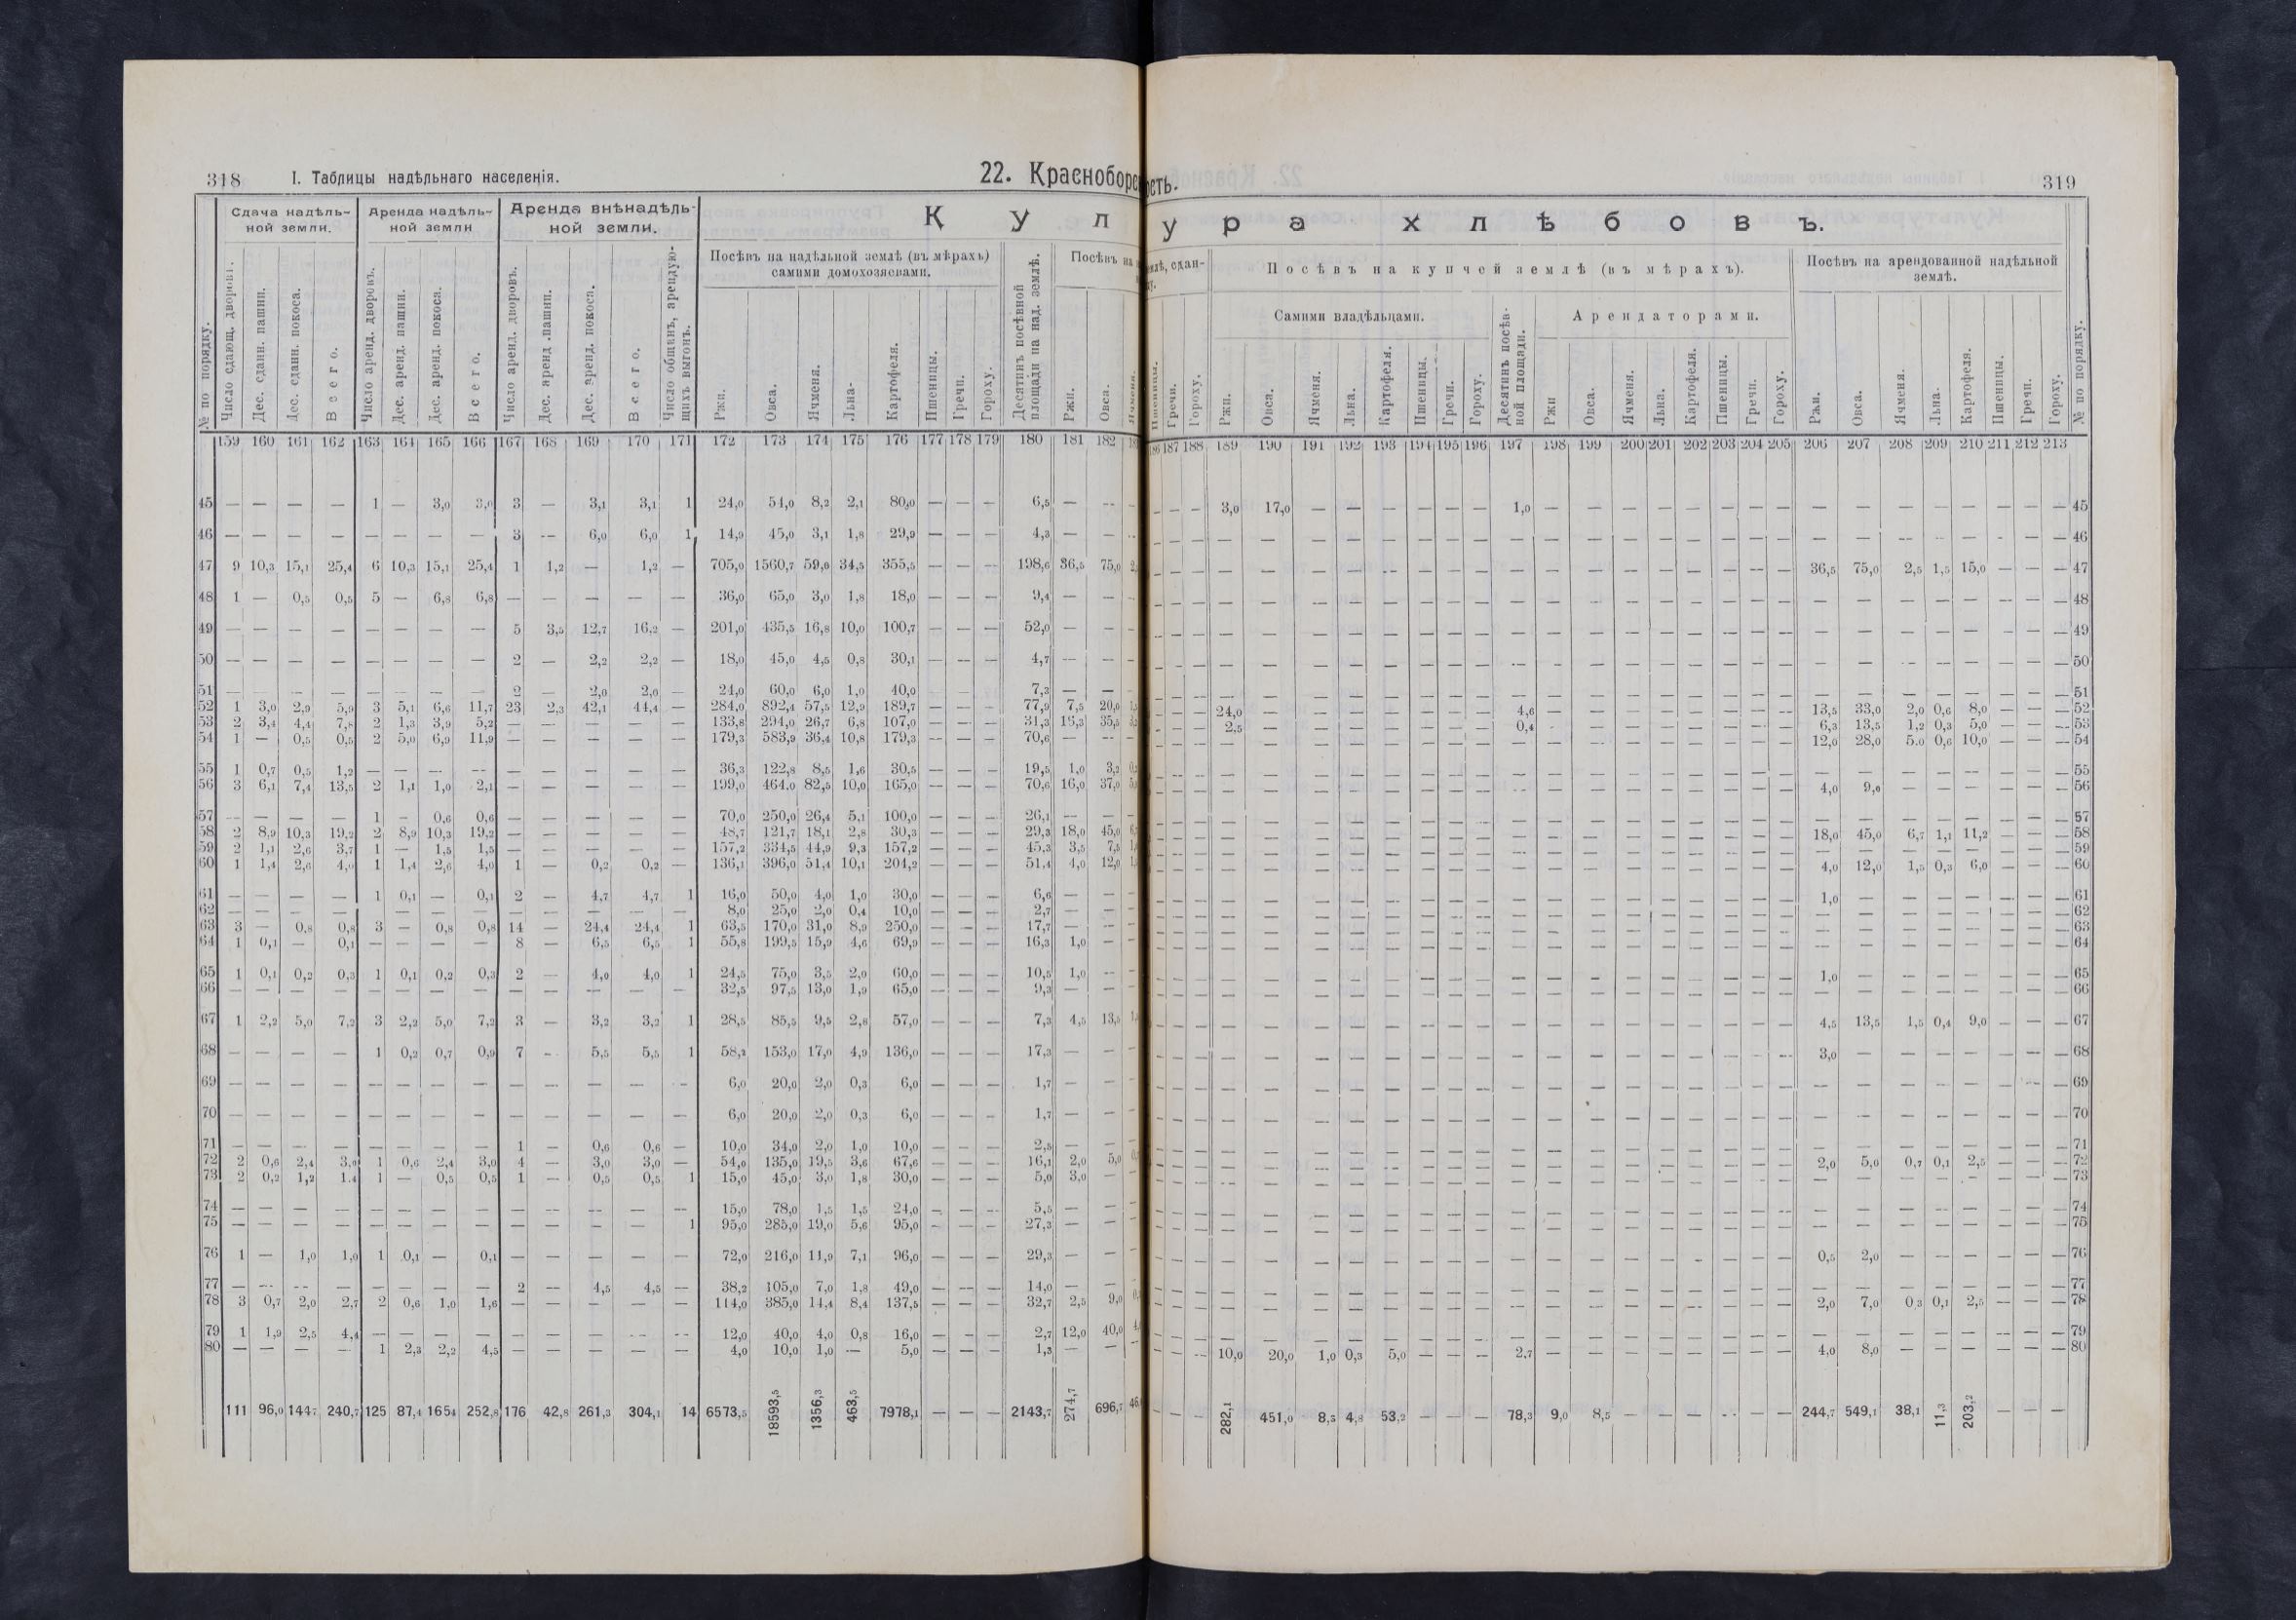 318 I. Таблицы надѣльнаго населенія. 22. Красноборс
ость. 319
Сдача надѣль-
ной земли.
Аренда надѣль-
ной земли
Аренда внѣнадѣль-
ной земли.
К У Л
У Р А Х Л Ѣ Б О В Ъ.
Посѣвъ на надѣльной землѣ (въ мѣрахъ)
самими домохозяевами.
Посѣвъ на
землѣ, сдан-
Посѣвъ на купчей землѣ (въ мѣрахъ).
Посѣвъ на арендованной надѣльной
землѣ.
Самими владѣльцами.
Арендаторами.
№ по порядку.
Число сдающ. дворовъ.
Дес. сданн. пашни.
Дес. сданн. покоса.
Всего.
Число аренд. дворовъ.
Дес. аренд. пашни.
Дес. аренд. покоса.
Всего.
Число аренд. дворовъ.
Дес. аренд. пашни.
Дес. аренд. покоса.
Всего.
Число общинъ, арендую-
щихъ выгонъ.
Ржи.
Овса.
Ячменя.
Льна-
Картофеля.
Пшеницы.
Гречи.
Гороху.
Десятинъ посѣвной
площади на над. землѣ.
Ржи.
Овса.
Ячменя.
Пшеницы.
Гречи.
Гороху.
Ржи.
Овса.
Ячменя.
Льна.
Картофеля.
Пшеницы.
Гречи.
Гороху.
Десятинъ посѣв-
ной площади.
Ржи
Овса.
Ячменя.
Льна.
Картофеля.
Пшеницы.
Гречи.
Гороху.
Ржи.
Овса.
Ячменя.
Льна-
Картофеля.
Пшеницы.
Гречи.
Гороху.
№ по порядку.
159 160 161 162 163 164 165 166 167 168 169 170 171 172 173 174 175 176 177 178 179 180 181 182
186 187 188 189 190 191 192 193 194 195 196 197 198 199 200 201 202 203 204 205 206 207 208 209 210 211 212 213
45 — — — — 1 — 3,0 3,0 3 — 3,1 3,1 1 24,0 54,0 8,2 2,1 80,0 — — — 6,5 — —
— — — 3,0 17,0 — — — — — — 1,0 — — — — — — — — — — — — — — — — 45
46 — — — — — — — — 3 — 6,0 6,0 1 14,9 45,0 3,1 1,8 29,9 — — — 4,3 — —
— — — — — — — — — — — — — — — — — — — — — — — — — — — — 46
47 9 10,3 15,1 25,4 6 10,3 15,1 25,4 1 1,2 — 1,2 — 705,0 1560,7 59,0 34,5 355,5 — — — 198,6 36,5 75,0
— — — — — — — — — — — — — — — — — — — — 36,5 75,0 2,5 1,5 15,0 — — — 47
48 1 — 0,5 0,5 5 — 6,8 6,8 — — — — — 36,0 65,0 3,0 1,8 18,0 — — — 9,4 — —
— — — — — — — — — — — — — — — — — — — — — — — — — — — — 48
49 — — — — — — — — 5 3,5 12,7 16,2 — 201,0 435,5 16,8 10,0 100,7 — — — 52,0 — —
— — — — — — — — — — — — — — — — — — — — — — — — — — — — 49
50 — — — — — — — — 2 — 2,2 2,2 — 18,0 45,0 4,5 0,8 30,1 — — — 4,7 — —
— — — — — — — — — — — — — — — — — — — — — — — — — — — — 50
51 — — — — — — — — 2 — 2,0 2,0 — 24,0 60,0 6,0 1,0 40,0 — — 7,2 — —
— — — — — — — — — — — — — — — — — — — — — — — — — — — — 51
52 1 3,0 2,9 5,9 3 5,1 6,6 11,7 23 2,3 42,1 44,4 — 284,0 892,4 57,5 12,9 189,7 — — — 77,9 7,5 20,0
— — — 24,0 — — — — — — — 4,6 — — — — — — — — 13,5 33,0 2,0 0,6 8,0 — — — 52
53 2 3,4 4,4 7,8 2 1,3 3,9 5,2 — — — — — 133,8 294,0 26,7 6,8 107,0 — — — 31,3 15,3 35,5
— — — 2,5 — — — — — — — 0,4 — — — — — — — — 6,3 13,5 1,2 0,3 5,0 — — — 53
54 1 — 0,5 0,5 2 5,0 6,9 11,9 — — — — — 179,3 583,9 36,4 10,8 179,3 — — — 70,6 — —
— — — — — — — — — — — — — — — — — — — — 12,0 28,0 5.0 0,6 10,0 — — — 54
55 1 0,7 0,5 1,2 — — — — — — — — — 36,3 122,8 8,5 1,6 30,5 — — — 19,5 1,0 3,2
— — — — — — — — — — — — — — — — — — — — — — — — — — — — 55
56 3 6,1 7,4 13,5 2 1,1 1,0 2,1 — — — — — 199,0 464.0 82,5 10,0 165,0 — — — 70,6 16,0 37,0
— — — — — — — — — — — — — — — — — — — — 4,0 9,0 — — — — — — 56
57 — — — — 1 — 0,6 0,6 — — — — — 70,0 250,0 26,4 5,1 100,0 — — — 26,1 — —
— — — — — — — — — — — — — — — — — — — — — — — — — — — — 57
58 2 8,9 10,3 19,2 2 8,9 10,3 19,2 — — — — — 48,7 121,7 18,1 2,8 30,3 — — — 29,3 18,0 45,0
— — — — — — — — — — — — — — — — — — — — 18,0 45,0 6,7 1,1 11,2 — — — 58
59 2 1,1 2,6 3,7 1 — 1,5 1,5 — — — — — 157,2 334,5 44,9 9,3 157,2 — — — 45,3 3,5 7,5
— — — — — — — — — — — — — — — — — — — — — — — — — — — — 59
60 1 1,4 2,6 4,0 1 1,4 2,6 4,0 1 — 0,2 0,2 — 136,1 396,0 51,4 10,1 204,2 — — — 51.4 4,0 12,0
— — — — — — — — — — — — — — — — — — — — 4,0 12,0 1,5 0,3 6,0 — — — 60
61 — — — — 1 0,1 — 0,1 2 — 4,7 4,7 1 16,0 50,0 4,0 1,0 30,0 — — — 6,6 — —
— — — — — — — — — — — — — — — — — — — — 1,0 — — — — — — — 61
62 — — — — — — — — — — — — — 8,0 25,0 2,0 0,4 10,0 — — — 2,7 — —
— — — — — — — — — — — — — — — — — — — — — — — — — — — — 62
63 3 — 0,8 0,8 3 — 0,8 0,8 14 — 24,4 24,4 1 63,5 170,0 31,0 8,9 250,0 — — — 17,7 — —
— — — — — — — — — — — — — — — — — — — — — — — — — — — — 63
64 1 0,1 — 0,1 — — — — 8 — 6,5 6,5 1 55,8 199,5 15,9 4,6 69,9 — — — 16,3 1,0 —
— — — — — — — — — — — — — — — — — — — — — — — — — — — — 64
65 1 0,1 0,2 0,3 1 0,1 0,2 0,3 2 — 4,0 4,0 1 24,5 75,0 3,5 2,0 60,0 — — — 10,5 1,0 —
— — — — — — — — — — — — — — — — — — — — 1,0 — — — — — — — 65
66 — — — — — — — — — — — — — 32,5 97,5 13,0 1,9 65,0 — — — 9,3 — —
— — — — — — — — — — — — — — — — — — — — — — — — — — — — 66
67 1 2,2 5,0 7,2 3 2,2 5,0 7,2 3 — 3,2 3,2 1 28,5 85,5 9,5 2,8 57,0 — — — 7,3 4,5 13,5
— — — — — — — — — — — — — — — — — — — — 4,5 13,5 1,5 0,4 9,0 — — — 67
68 — — — — 1 0,2 0,7 0,9 7 — 5,5 5,5 1 58,2 153,0 17,0 4,9 136,0 — — — 17,3 — —
— — — — — — — — — — — — — — — — — — — — 3,0 — — — — — — — 68
69 — — — — — — — — — — — — — 6,0 20,0 2,0 0,3 6,0 — — — 1,7 — —
— — — — — — — — — — — — — — — — — — — — — — — — — — — — 69
70 — — — — — — — — — — — — — 6,0 20,0 2,0 0,3 6,0 — — — 1,7 — —
— — — — — — — — — — — — — — — — — — — — — — — — — — — — 70
71 — — — — — — — — 1 — 0,6 0,6 — 10,0 34,0 2,0 1,0 10,0 — — — 2,5 — —
— — — — — — — — — — — — — — — — — — — — — — — — — — — — 71
72 2 0,6 2,4 3,0 1 0,6 2,4 3,0 4 — 3,0 3,0 — 54,0 135,0 19,5 3,6 67,6 — — — 16,1 2,0 5,0
— — — — — — — — — — — — — — — — — — — — 2,0 5,0 0,7 0,1 2,5 — — — 72
73 2 0,2 1,2 1.4 1 — 0,5 0,5 1 — 0,5 0,5 1 15,0 45,0 3,0 1,8 30,0 — — — 5,0 3,0 —
— — — — — — — — — — — — — — — — — — — — — — — — — — — — 73
74 — — — — — — — — — — — — — 15,0 78,0 1,5 1,5 24,0 — — — 5,5 — —
— — — — — — — — — — — — — — — — — — — — — — — — — — — — 74
75 — — — — — — — — — — — — 1 95,0 285,0 19,0 5,6 95,0 — — — 27,3 — —
— — — — — — — — — — — — — — — — — — — — — — — — — — — — 75
76 1 — 1,0 1,0 1 0,1 — 0,1 — — — — — 72,0 216,0 11,9 7,1 96,0 — — — 29,3 — —
— — — — — — — — — — — — — — — — — — — — 0,5 2,0 — — — — — — 76
77 — — — — — — — — 2 — 4,5 4,5 — 38,2 105,0 7,0 1,8 49,0 — — — 14,0 — —
— — — — — — — — — — — — — — — — — — — — — — — — — — — — 77
78 3 0,7 2,0 2,7 2 0,6 1,0 1,6 — — — — — 114,0 385,0 14,4 8,4 137,5 — — — 32,7 2,5 9,0
— — — — — — — — — — — — — — — — — — — — 2,0 7,0 0,3 0,1 2,5 — — — 78
79 1 1,9 2,5 4,4 — — — — — — — — — 12,0 40,0 4,0 0,8 16,0 — — — 2,7 12,0 40,0
— — — — — — — — — — — — — — — — — — — — — — — — — — — — 79
80 — — — — 1 2,3 2,2 4,5 — — — — — 4,0 10,0 1,0 — 5,0 — — — 1,3 — —
— — — 10,0 20,0 1,0 0,3 5,0 — — — 2,7 — — — — — — — — 4,0 8,0 — — — — — — 80
111 96,0 144,7 240,7 125 87,4 165,4 252,8 176 42,8 261,3 304,1 14 6573,5 18593,5 1356,3 463,5 7978,1 — — — 2143,7 274,7 696,7
— — — 282,1 451,0 8,3 4,8 53,2 — — — 78,3 9,0 8,5 — — — — — — 244,7 549,1 38,1 11,3 203,2 — — —